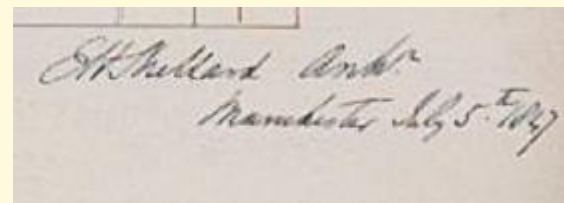 EHShellard Archt.
Manchester July 5.th 1847